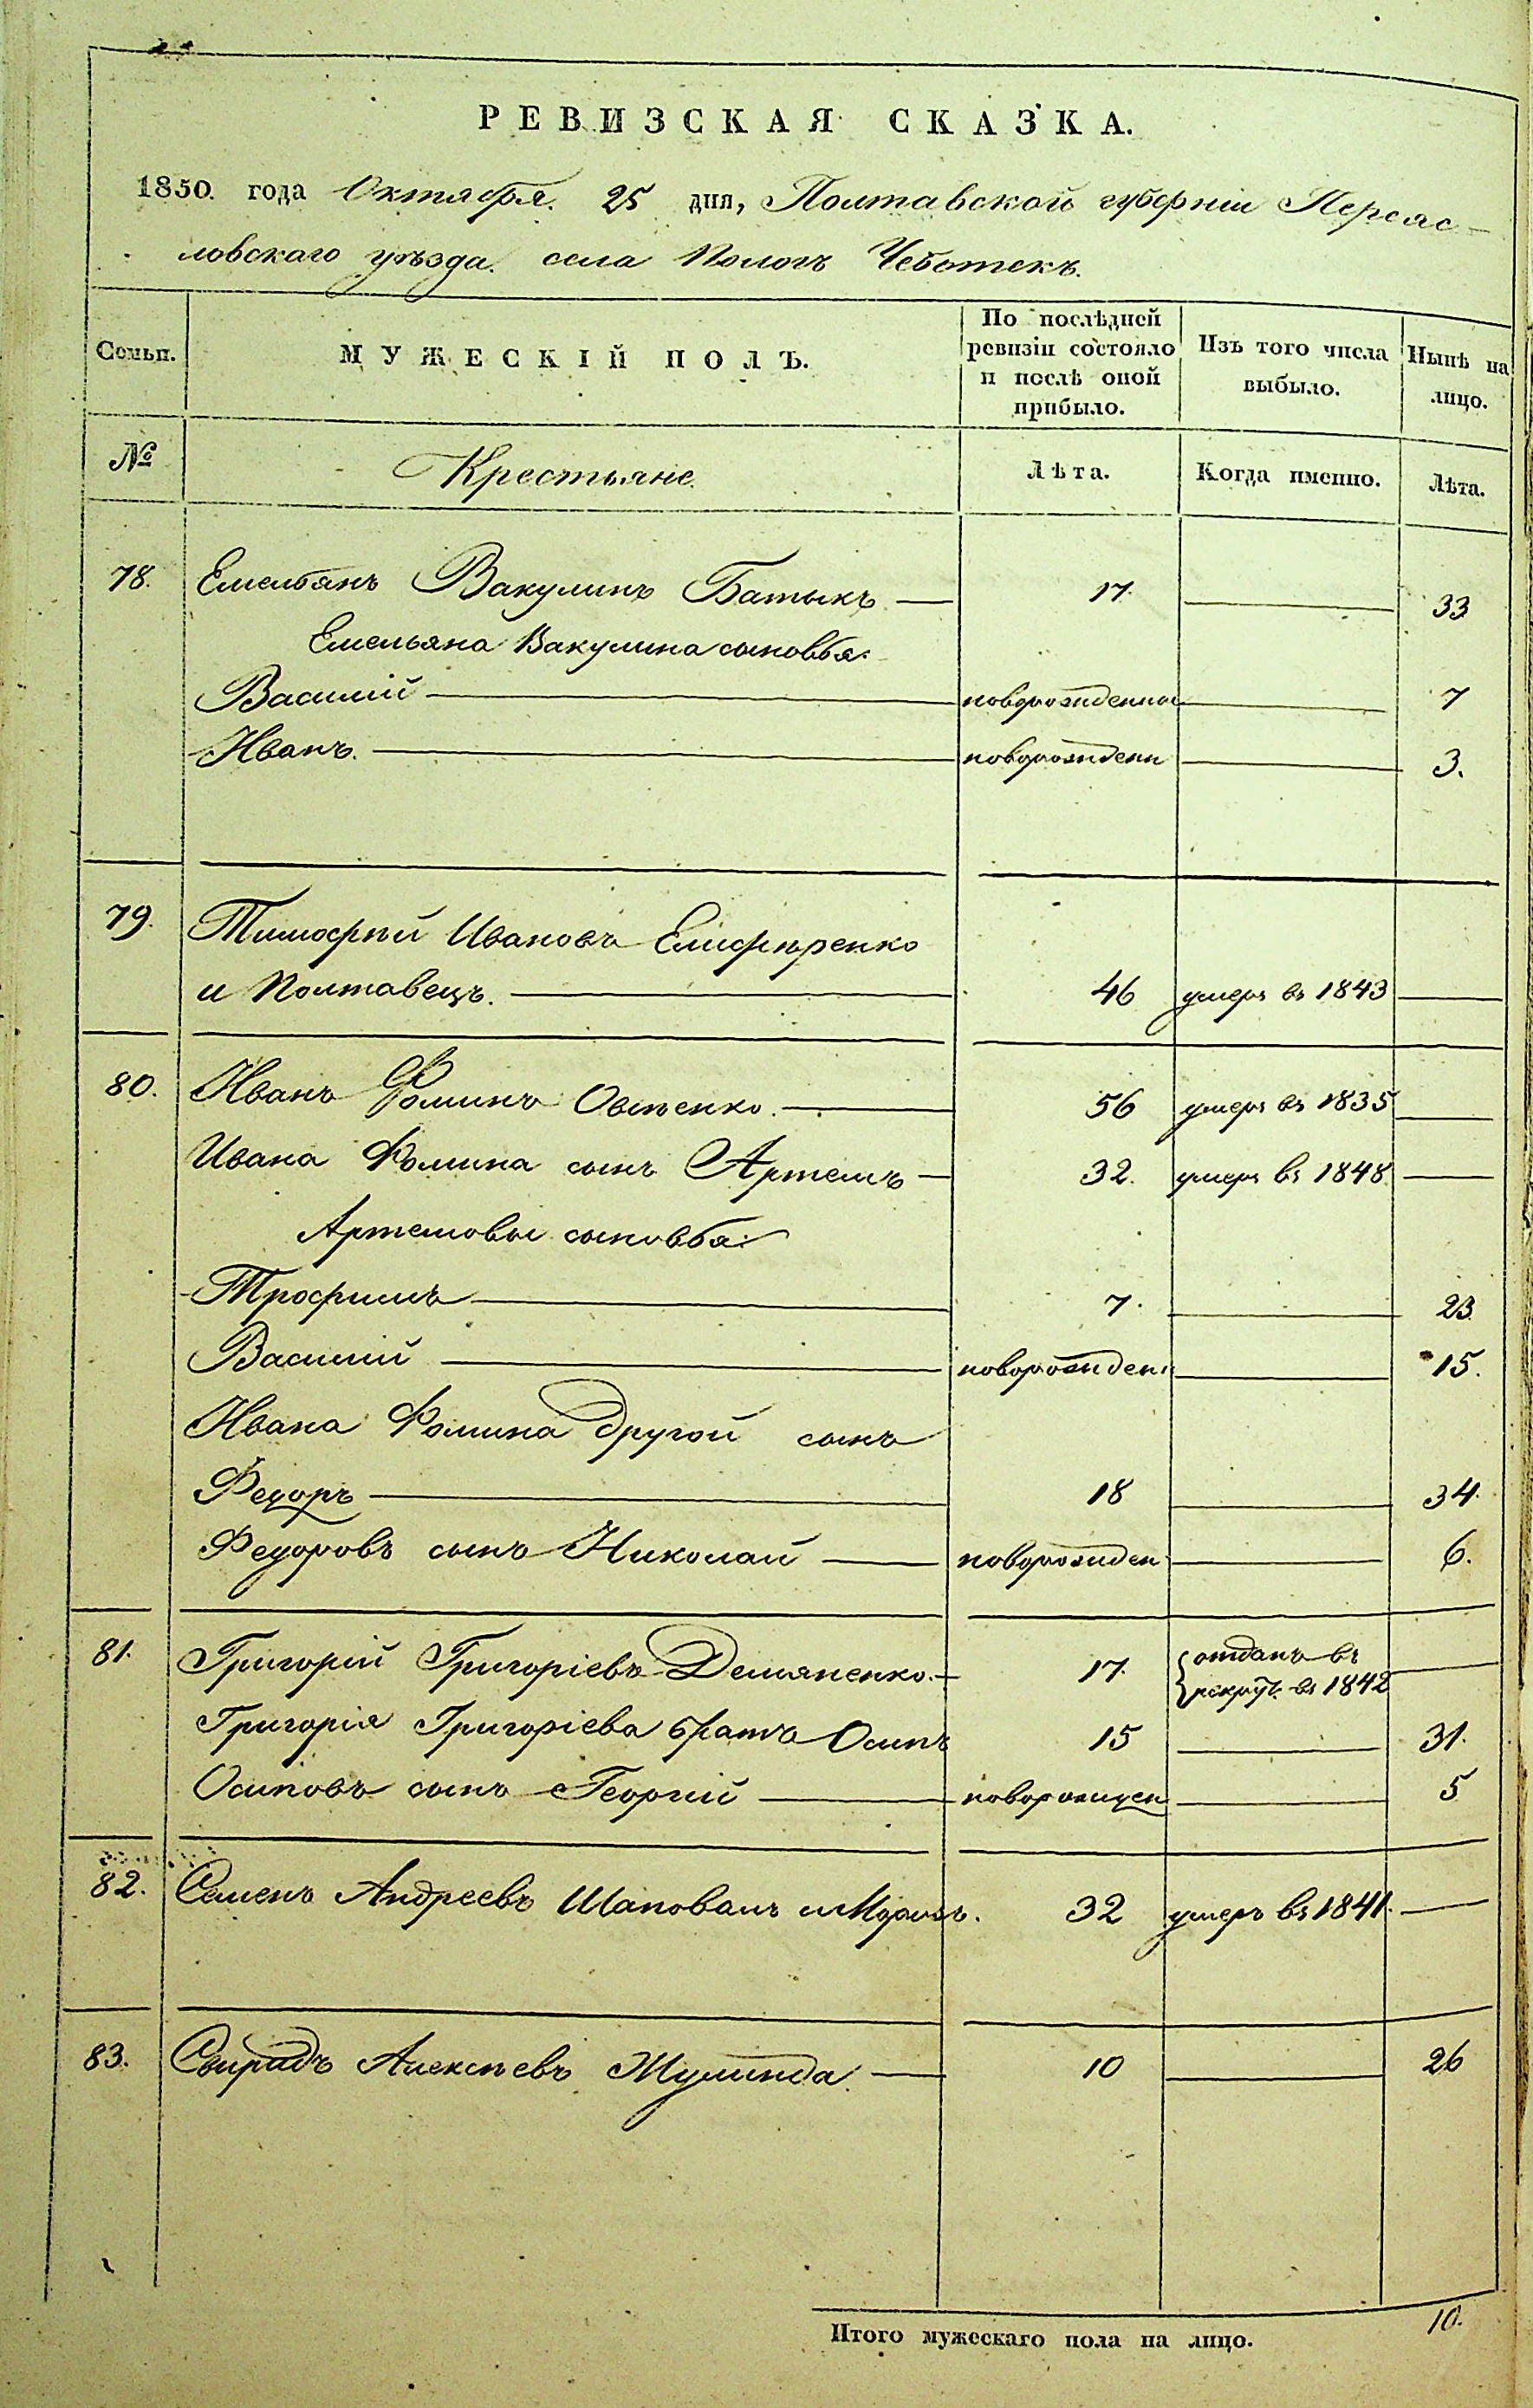 РЕВИЗСКАЯ СКАЗКА.
1850. года Октября. 25 дня, Полтавской губерніи Переяс-
ловскаго уѣзда. села Пологъ Чеботекъ.
Семьи. МУЖЕСКІЙ ПОЛЪ. По послѣдней ревизіи состояло и послѣ оной прибыло. Изъ того числа выбыло. Нынѣ на лицо.
№ Крестьяне. Лѣта. Когда именно. Лѣта.
78. Емельянъ Вакулинъ Батыкъ — 17. — 33
Емельяна Вакулина сыновья:
Василій — новорожденны — 7
Иванъ. — новорожденн — 3.
79. Тимофѣй Ивановъ Елисфѣренко
и Полтавецъ. — 46 умеръ въ 1843 —
80. Иванъ Фоминъ Овсѣенко. — 56 умеръ въ 1835 —
Ивана Фомина сынъ Артемъ — 32. умеръ въ 1848 —
Артемовы сыновья:
Трофимъ — 7. — 23
Василій — новорожден — 15.
Ивана Фомина другой сынъ
Федоръ — 18 — 34.
Федоровъ сынъ Николай — новорожден — 6.
81. Григорій Григоріевъ Демяненко. — 17. отданъ въ
рекрут. въ 1842 —
Григорія Григоріева братъ Осипъ 15 — 31.
Осиповъ сынъ Георгій — новорожден — 5
82. Семенъ Андреевъ Шаповалъ и Морозъ. 32 умеръ въ 1841. —
83. Свиридъ Алексѣевъ Жулинда. — 10 — 26
Итого мужескаго пола на лицо. 10.